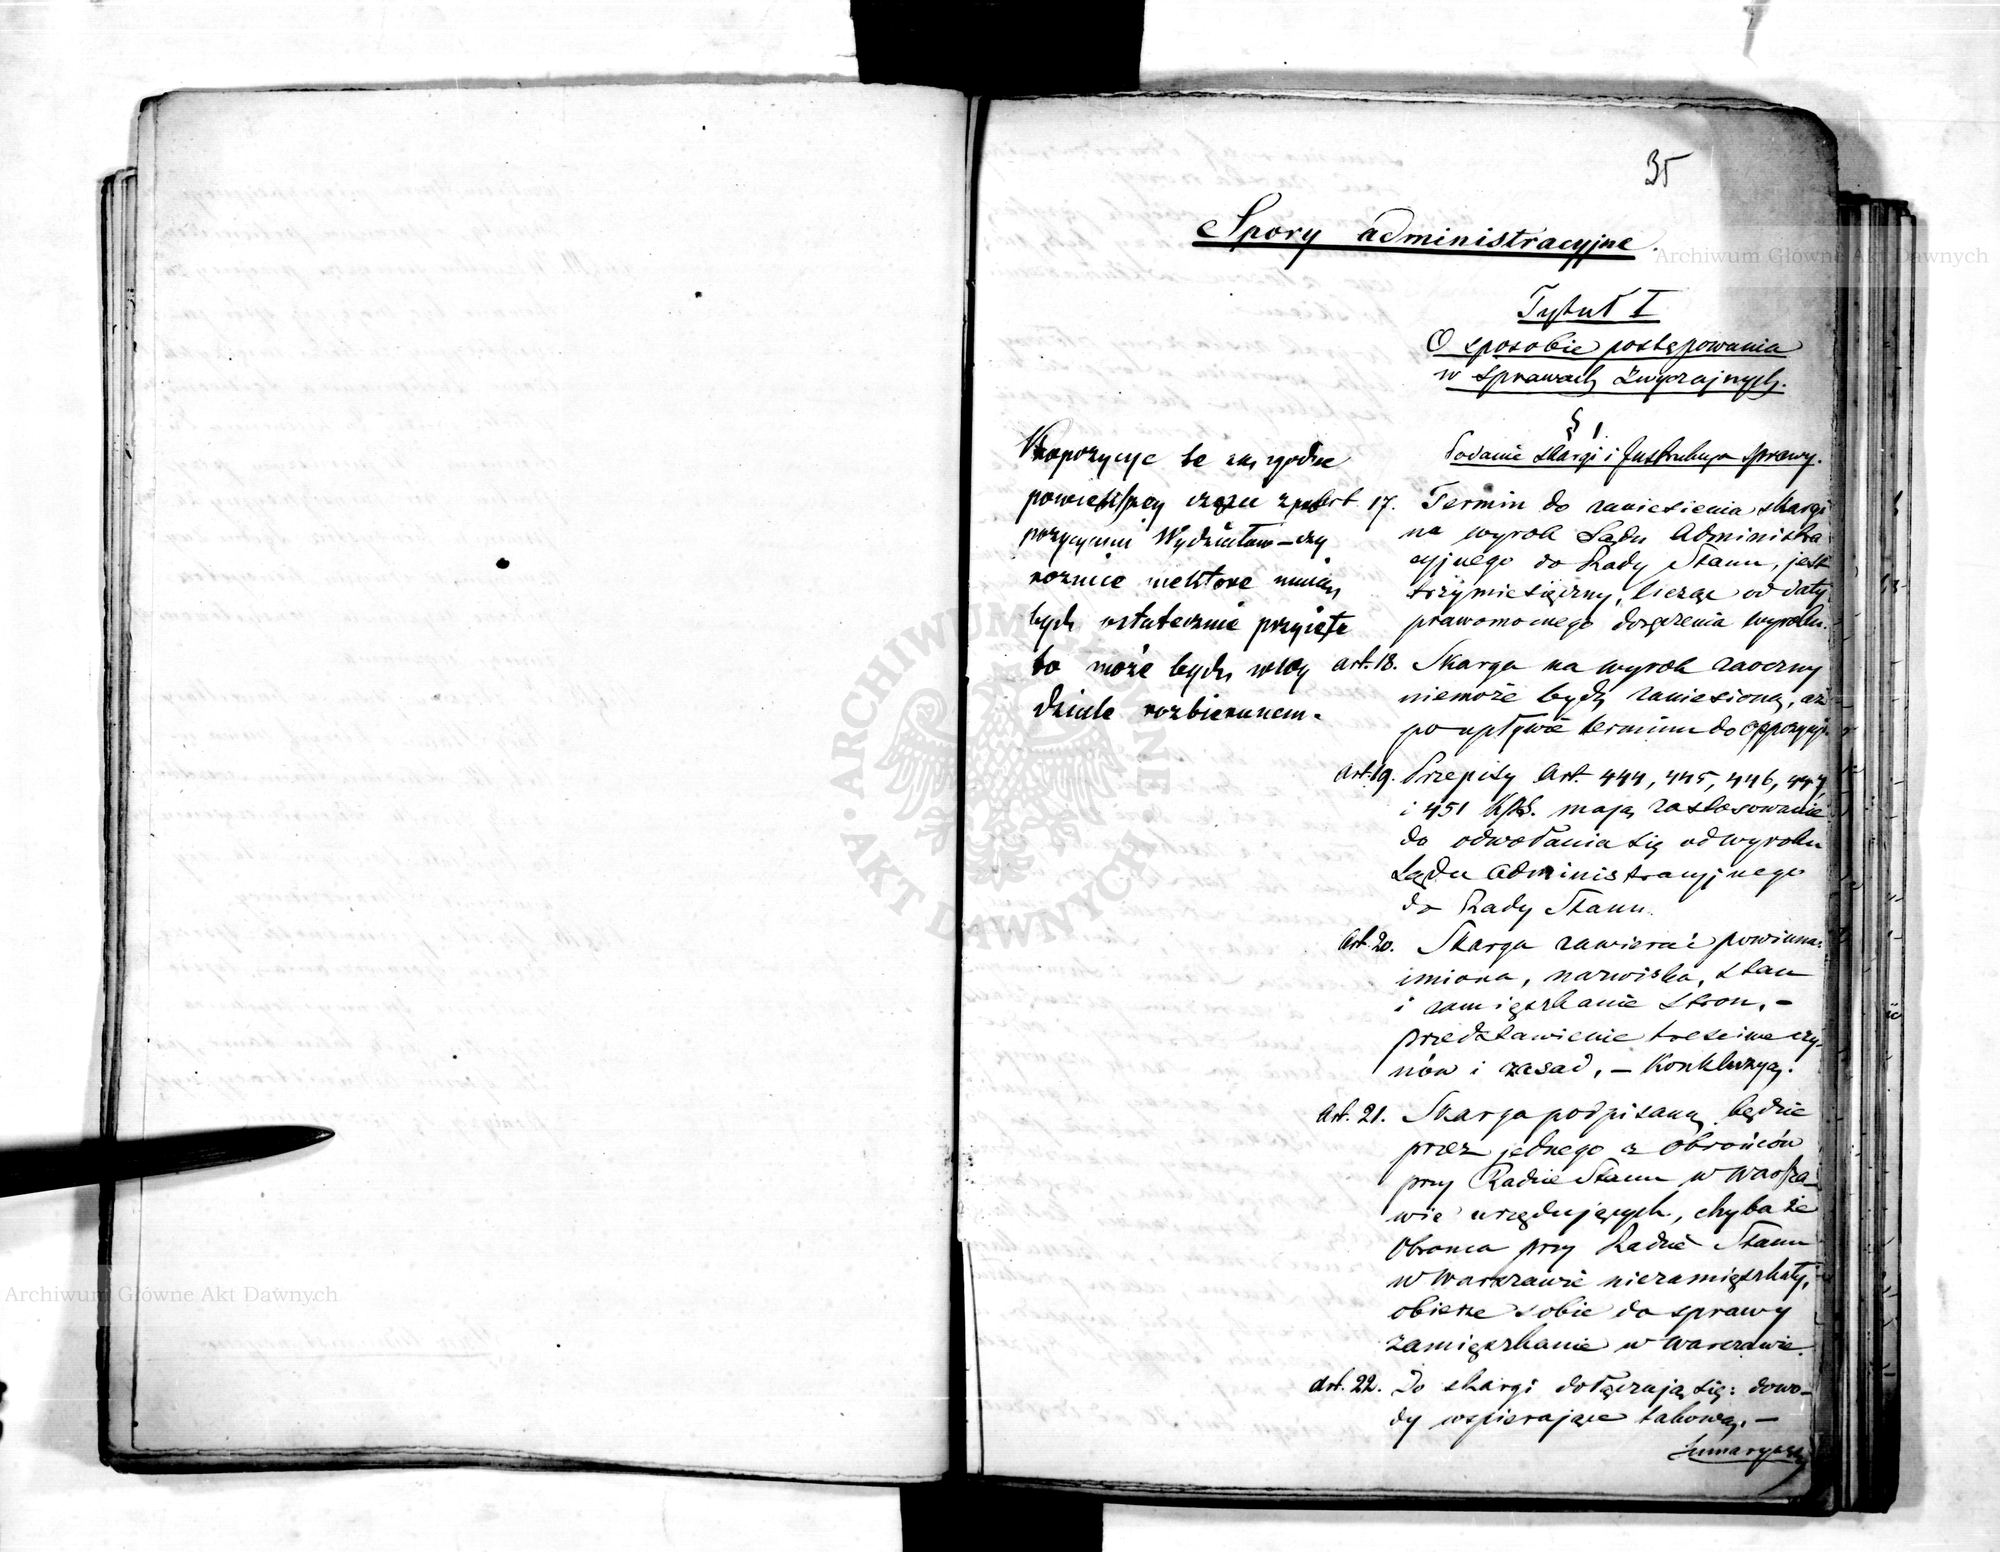 35
Spory administracyjne.
Tytuł I
O sposobie postępowania
w sprawach zwyczajnych.
§ 1.
Podanie skargi i Instrukcya sprawy.
Propozycye te są zgodne
powiększey części z pro
pozycyami Wydziału – czy
roznice niektore maią
bydź ostatecznie przyięte
to może bydź w Wy
dziale rozbieranem.
Art. 17. Termin do zaniesienia skargi
na wyrok Sądu Administra
cyjnego do Rady Stanu, jest
trzymiesięczny, licząc od daty
prawomocnego doręczenia wyroku.
Art. 18. Skarga na wyrok zaoczny
niemoże bydź zaniesioną, aż
po upływie terminu do oppozycyi.
Art. 19. Przepisy Art. 444, 445, 446, 447,
i 451 KPS. mają zastosowanie
do odwołania się od wyroku
Sądu Administracyjnego
do Rady Stanu.
Art. 20. Skarga zawierać powinna:
imiona, nazwiska, stan
i zamięszkanie stron, –
przedstawienie treściwe czy-
nów i zasad, – Konkluzyą.
Art. 21. Skarga podpisaną będzie
przez jednego z Obrońców
przy Radzie Stanu w Warsza-
wie urzędujących, chyba że
Obrońca przy Radzie Stanu
w Warszawie niezamięszkały,
obierze sobie do sprawy
zamięszkanie w Warszawie.
Art. 22. Do skargi dołączają się: dowo-
dy wspierające takową. –
Sumaryusz
Archiwum Główne Akt Dawnych
Archiwum Główne Akt Dawnych
ARCHIWUM GŁÓWNE AKT DAWNYCH